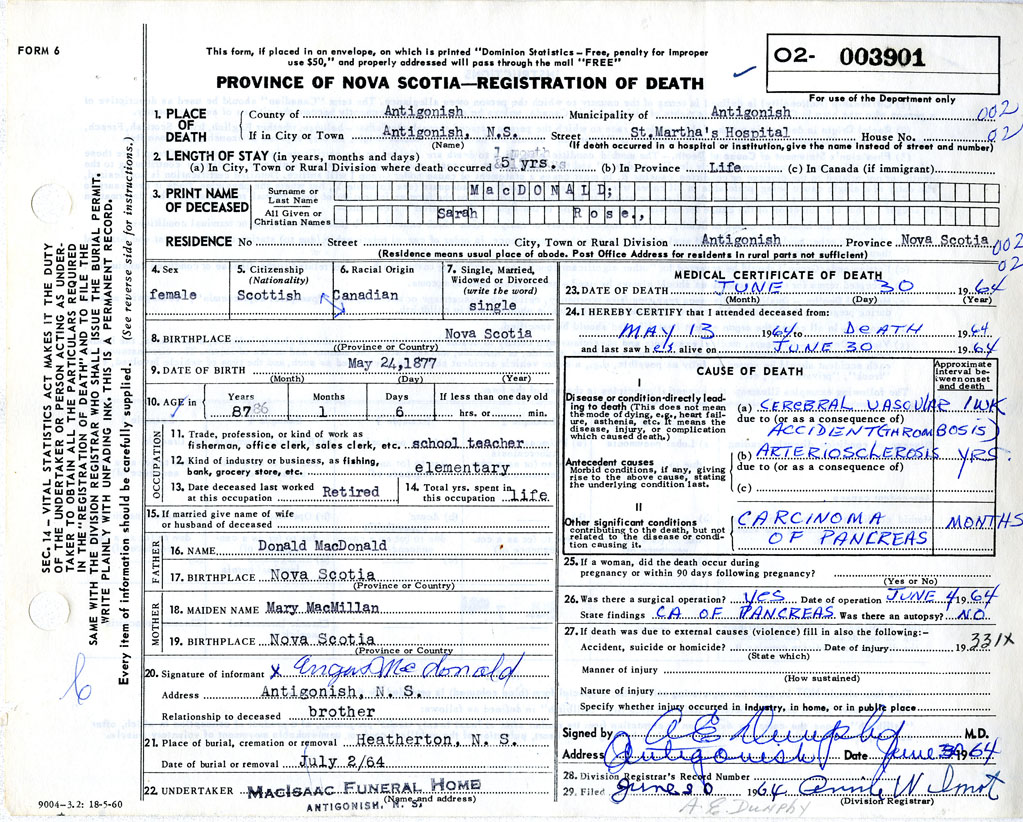 FORM 6
This form, if placed in an envelope, on which is printed "Dominion Statistics – Free, penalty for improper
use $50," and properly addressed will pass through the mail "FREE"
PROVINCE OF NOVA SCOTIA—REGISTRATION OF DEATH
02- 003901
For use of the Department only
SEC. 14 – VITAL STATISTICS ACT MAKES IT THE DUTY
OF THE UNDERTAKER OR PERSON ACTING AS UNDER-
TAKER TO OBTAIN ALL THE PARTICULARS REQUIRED
IN THE "REGISTRATION OF DEATH" AND TO FILE THE
SAME WITH THE DIVISION REGISTRAR WHO SHALL ISSUE THE BURIAL PERMIT.
WRITE PLAINLY WITH UNFADING INK. THIS IS A PERMANENT RECORD.
Every item of information should be carefully supplied. (See reverse side for instructions.)
1. PLACE OF DEATH
County of Antigonish Municipality of Antigonish 002
If in City or Town Antigonish, N.S. Street St.Martha's Hospital House No. 02
(Name) (If death occurred in a hospital or institution, give the name instead of street and number)
2. LENGTH OF STAY (in years, months and days)
1 month
(a) In City, Town or Rural Division where death occurred 5 yrs. (b) In Province Life (c) In Canada (if immigrant)
3. PRINT NAME OF DECEASED
Surname or Last Name MacDONALD;
All Given or Christian Names Sarah Rose.,
RESIDENCE No Street City, Town or Rural Division Antigonish Province Nova Scotia 002
(Residence means usual place of abode. Post Office Address for residents in rural parts not sufficient) 02
4. Sex
female
5. Citizenship (Nationality)
Scottish
6. Racial Origin
Canadian
7. Single, Married, Widowed or Divorced (write the word)
single
8. BIRTHPLACE Nova Scotia
((Province or (Country)
9. DATE OF BIRTH May 24,1877
(Month) (Day) (Year)
10. AGE in Years Months Days If less than one day old
87 86 1 6 hrs. or min.
OCCUPATION
11. Trade, profession, or kind of work as
fisherman, office clerk, sales clerk, etc. school teacher
12. Kind of industry or business, as fishing,
bank, grocery store, etc. elementary
13. Date deceased last worked at this occupation Retired
14. Total yrs. spent in this occupation life
15. If married give name of wife
or husband of deceased
FATHER
16. NAME Donald MacDonald
17. BIRTHPLACE Nova Scotia
(Province or Country)
MOTHER
18. MAIDEN NAME Mary MacMillan
19. BIRTHPLACE Nova Scotia
(Province or Country
20. Signature of informant x Angus Macdonald
Address Antigonish, N. S.
Relationship to deceased brother
21. Place of burial, cremation or removal Heatherton, N. S.
Date of burial or removal July 2/64
22. UNDERTAKER MACISAAC FUNERAL HOME
(Name and address)
ANTIGONISH, N. S.
9004–3.2: 18-5-60
MEDICAL CERTIFICATE OF DEATH
23. DATE OF DEATH JUNE 30 1964
(Month) (Day) (Year)
24. I HEREBY CERTIFY that I attended deceased from:
MAY 13 1964 to DEATH 1964
and last saw her alive on JUNE 30 1964
CAUSE OF DEATH
Approximate interval be- tween onset and death
I
Disease or condition directly lead-
ing to death (This does not mean
the mode of dying, e.g., heart fail-
ure, asthenia, etc. It means the
disease, injury, or complication
which caused death.)
(a) CEREBRAL VASCULAR 1 WK
due to (or as a consequence of)
ACCIDENT (THROMBOSIS)
Antecedent causes
Morbid conditions, if any, giving
rise to the above cause, stating
the underlying condition last.
(b) ARTERIOSCLEROSIS YRS.
due to (or as a consequence of)
(c)
II
Other significant conditions
contributing to the death, but not
related to the disease or condi-
tion causing it.
CARCINOMA MONTHS
OF PANCREAS
25. If a woman, did the death occur during
pregnancy or within 90 days following pregnancy?
(Yes or No)
26. Was there a surgical operation? YES Date of operation JUNE 4 1964
State findings CA. OF PANCREAS Was there an autopsy? NO
27. If death was due to external causes (violence) fill in also the following:–
331X
Accident, suicide or homicide? Date of injury 19
(State which)
Manner of injury
(How sustained)
Nature of injury
Specify whether injury occurred in industry, in home, or in public place
Signed by A E Dunphy M.D.
Address Antigonish Date June 30 1964
28. Division Registrar's Record Number
29. Filed June 30 1964 Annie Wilmot
(Division Registrar)
A. E DUNPHY